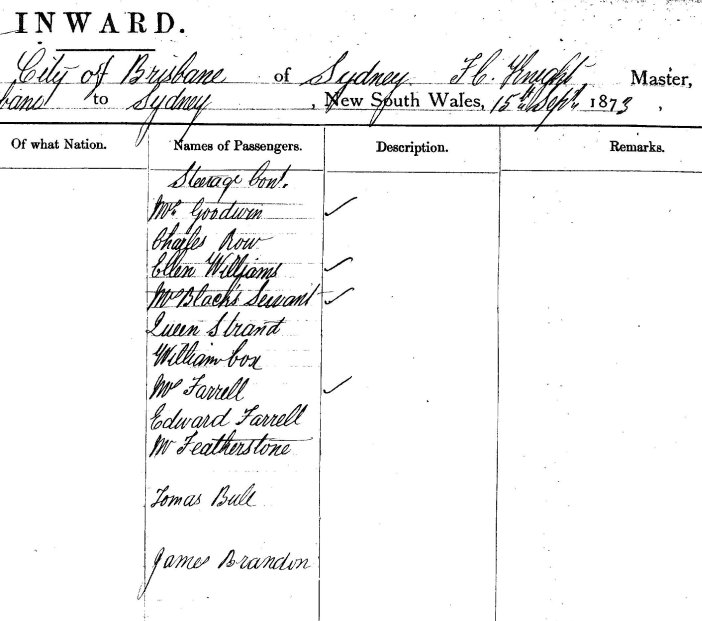 INWARD.
City of Brisbane of Sydney F.C. Knight Master,
bane to Sydney, New South Wales, 15th Septr 1873,
Of what Nation. Names of Passengers. Description. Remarks.
Steerage Cont.
Mrs Goodwin
Charles Row
Ellen Williams
Mrs Black's Servant
Queen Strand
William Cox
Mrs Farrell
Edward Farrell
Mr Featherstone
Tomas Bull
James Brandon